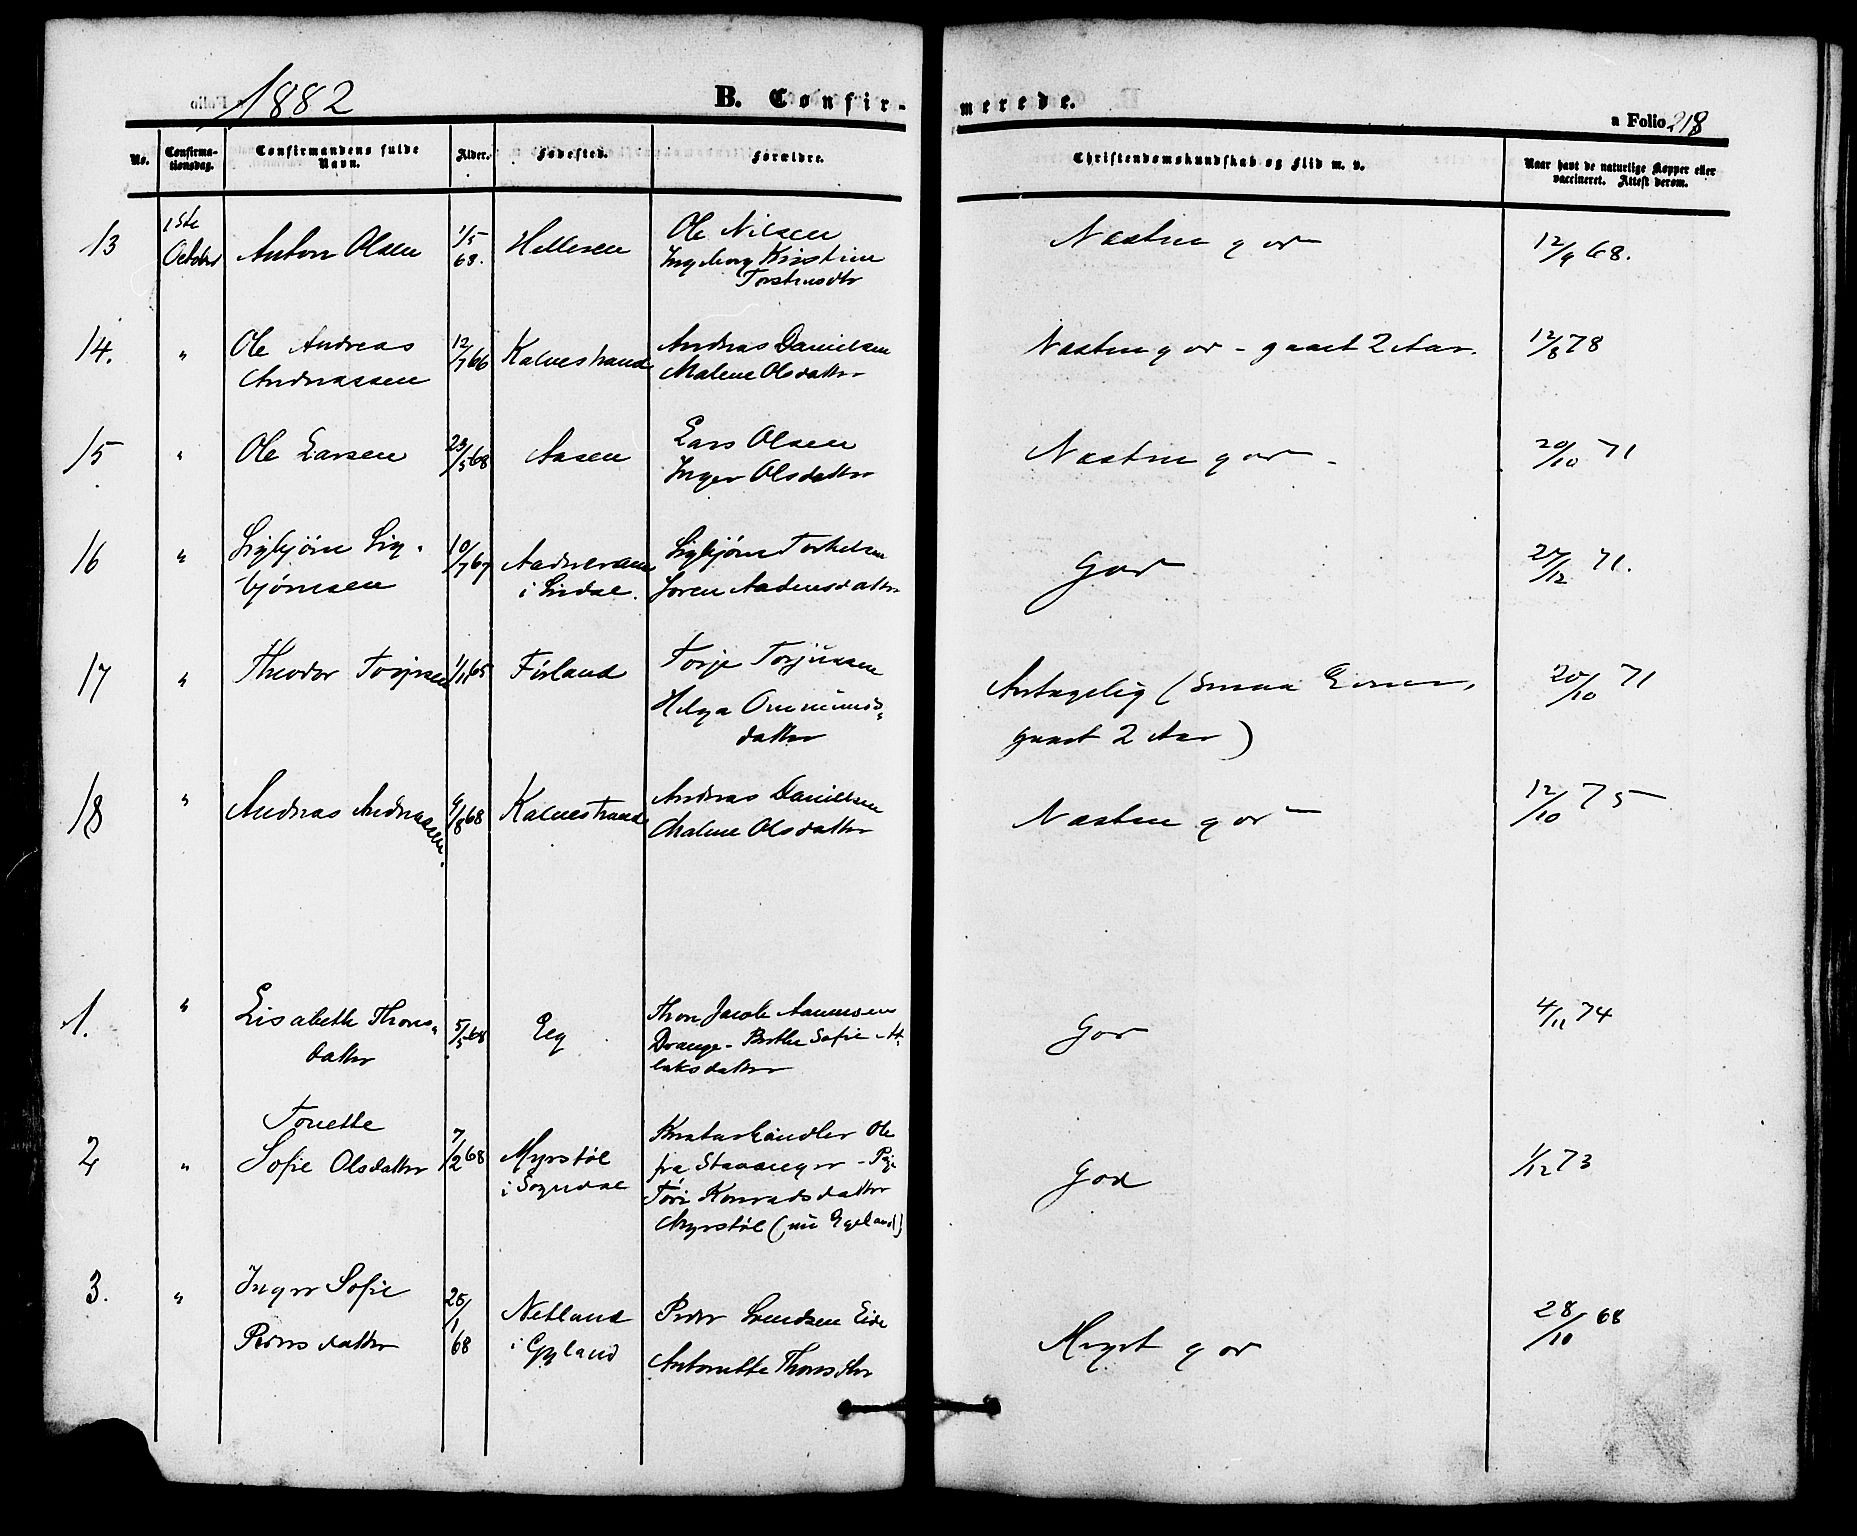 1882
B. Confirmerede.
a Folio 218
No.
Confirmationsdag.
Confirmandens fulde Navn.
Alder.
Fødested.
Forældre.
Christendomskundskab og Flid m. v.
Naar havt de naturlige Kopper eller vaccineret. Attest derom.
13 1ste October Anton Olsen 1/5 68. Hellesen Ole Nilsen Næsten god 12/9 68.
Ingeborg Kirstine
Torstensdtr
14. " Ole Andreas 12/7 66 Kalvestrand Andreas Danielsen Næsten god - gaaet 2 Aar. 12/8 78
Andreassen Malene Olsdatter
15 " Ole Larsen 23/5 68 Aasen Lars Olsen Næsten god - 20/10 71
Inger Olsdatter
16 " Sigbjørn Sig- 10/7 67 Sigbjørn Torkelsen God 27/12 71.
bjørnsen i Sirdal. Joren Aadensdatter
17 " Theodor Torjusen 1/11 65 Førland Torje Torjussen Antagelig (smaa Evner, 20/10 71
Helga Ommunds- gaaet 2 Aar)
datter
18 " Andreas Andreassen. 9/8 68 Kalvestrand Andreas Danielsen Næsten god 12/10 75
Malene Olsdatter
1. " Lisabeth Thors- 5/5 68 Eeg Thore Jacob Aanensen God 4/11 74
datter Drange - Berthe Sofie At-
laksdatter
2 " Tonette 7/2 68 Myrstøl Ole God 1/12 73
Sofie Olsdatter i Sogndal fra Stavanger - Pige
Tøri Konradsdatter
Myrstøl (nu Egeland)
3. " Inger Sofie 25/1 68 Netland Peder Svendsen Eide Meget god 28/10 68
Pedersdatter i Gyland Antonette Thorsdtr